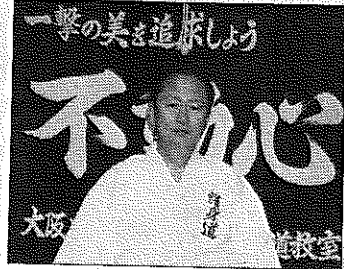 一撃の美を追求しよう
不 心
大阪 道教室